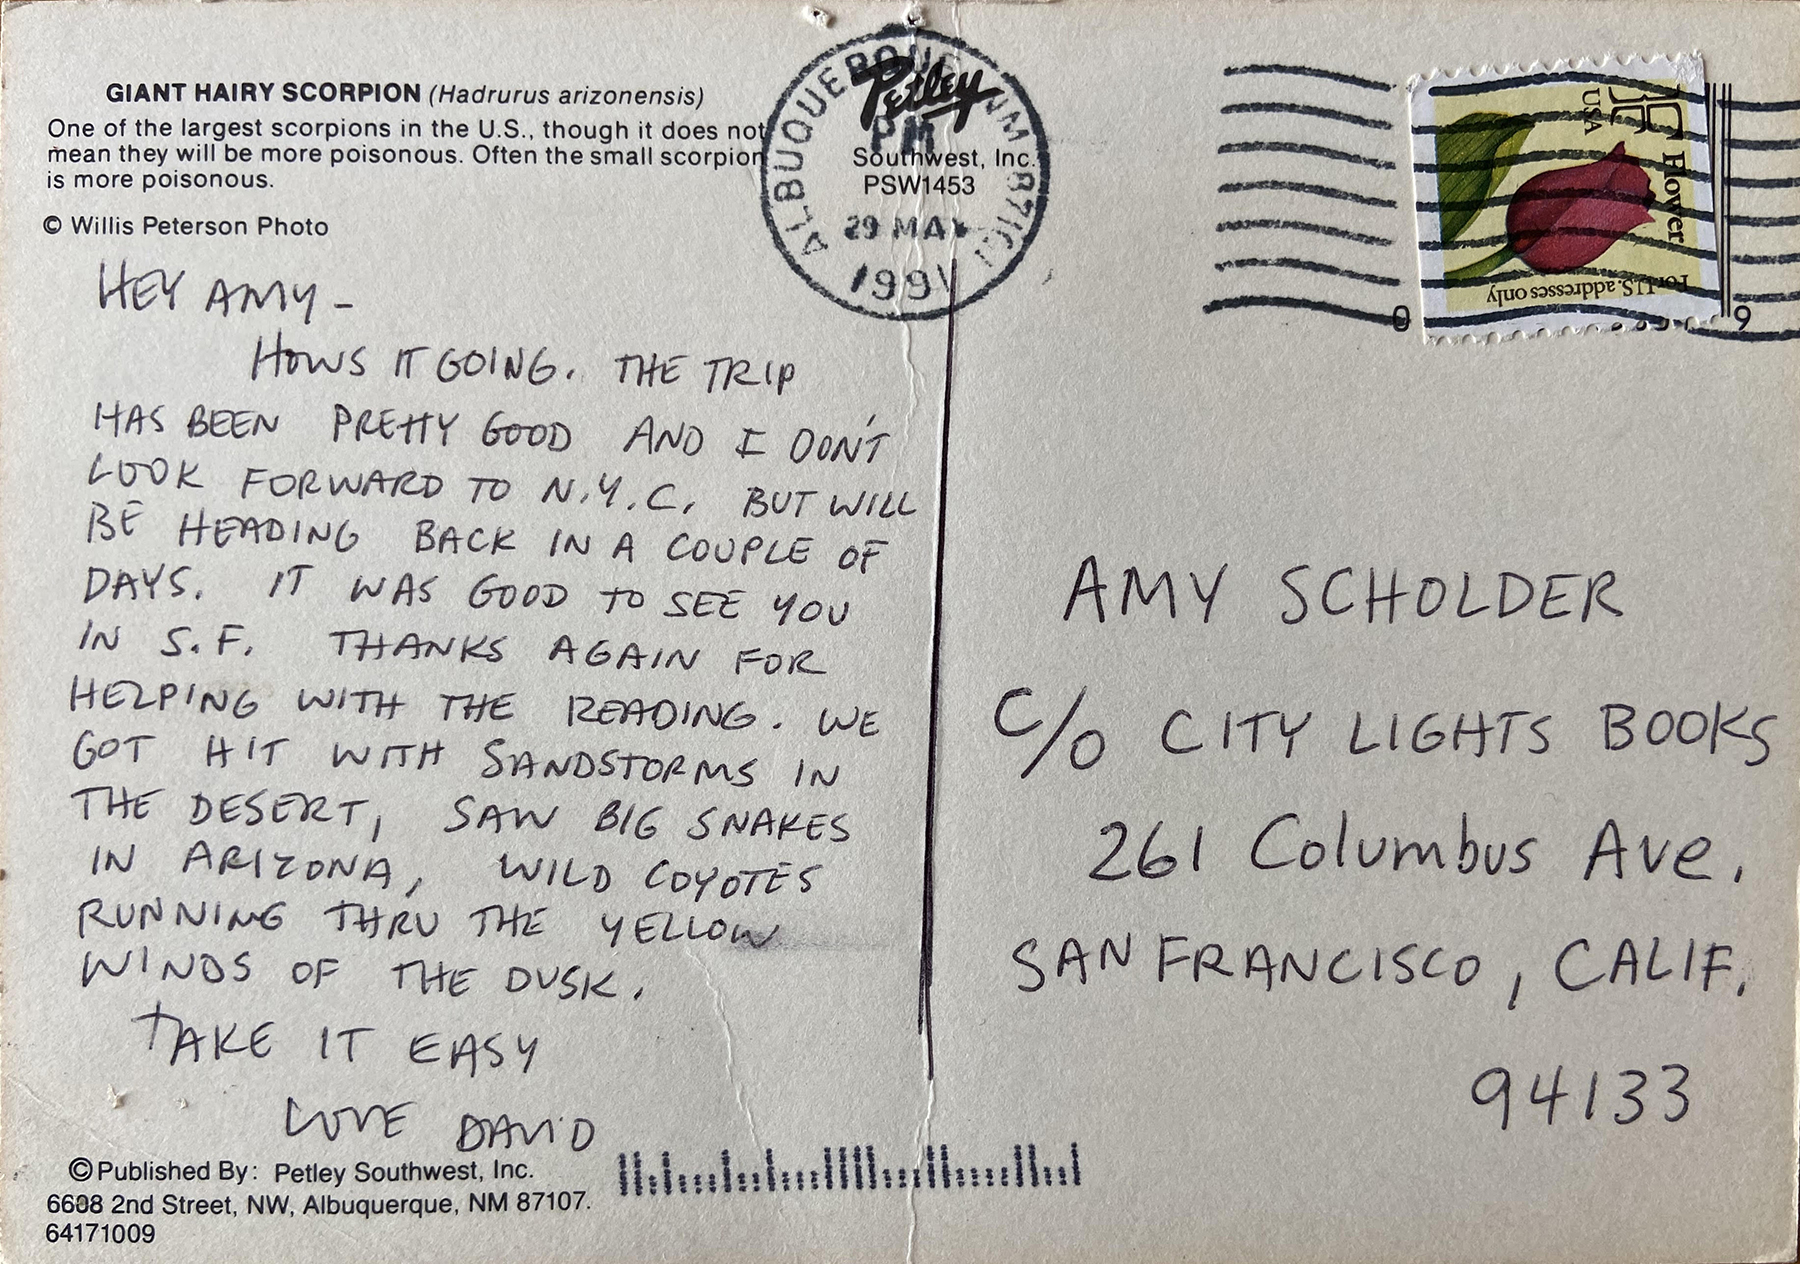 GIANT HAIRY SCORPION (Hadrurus arizonensis)
One of the largest scorpions in the U.S., though it does not
mean they will be more poisonous. Often the small scorpion
is more poisonous.
© Willis Peterson Photo
HEY AMY –
HOWS IT GOING. THE TRIP
HAS BEEN PRETTY GOOD AND I DON'T
LOOK FORWARD TO N.Y.C. BUT WILL
BE HEADING BACK IN A COUPLE OF
DAYS. IT WAS GOOD TO SEE YOU
IN S.F. THANKS AGAIN FOR
HELPING WITH THE READING. WE
GOT HIT WITH SANDSTORMS IN
THE DESERT, SAW BIG SNAKES
IN ARIZONA, WILD COYOTES
RUNNING THRU THE YELLOW
WINDS OF THE DUSK.
TAKE IT EASY
LOVE DAVID
© Published By: Petley Southwest, Inc.
6608 2nd Street, NW, Albuquerque, NM 87107.
64171009
Petley
Southwest, Inc.
PSW1453
ALBUQUERQUE NM
PM
29 MAY
1991
F
Flower
USA
For U.S. addresses only
0
9
AMY SCHOLDER
C/O CITY LIGHTS BOOKS
261 Columbus Ave.
SAN FRANCISCO, CALIF.
94133